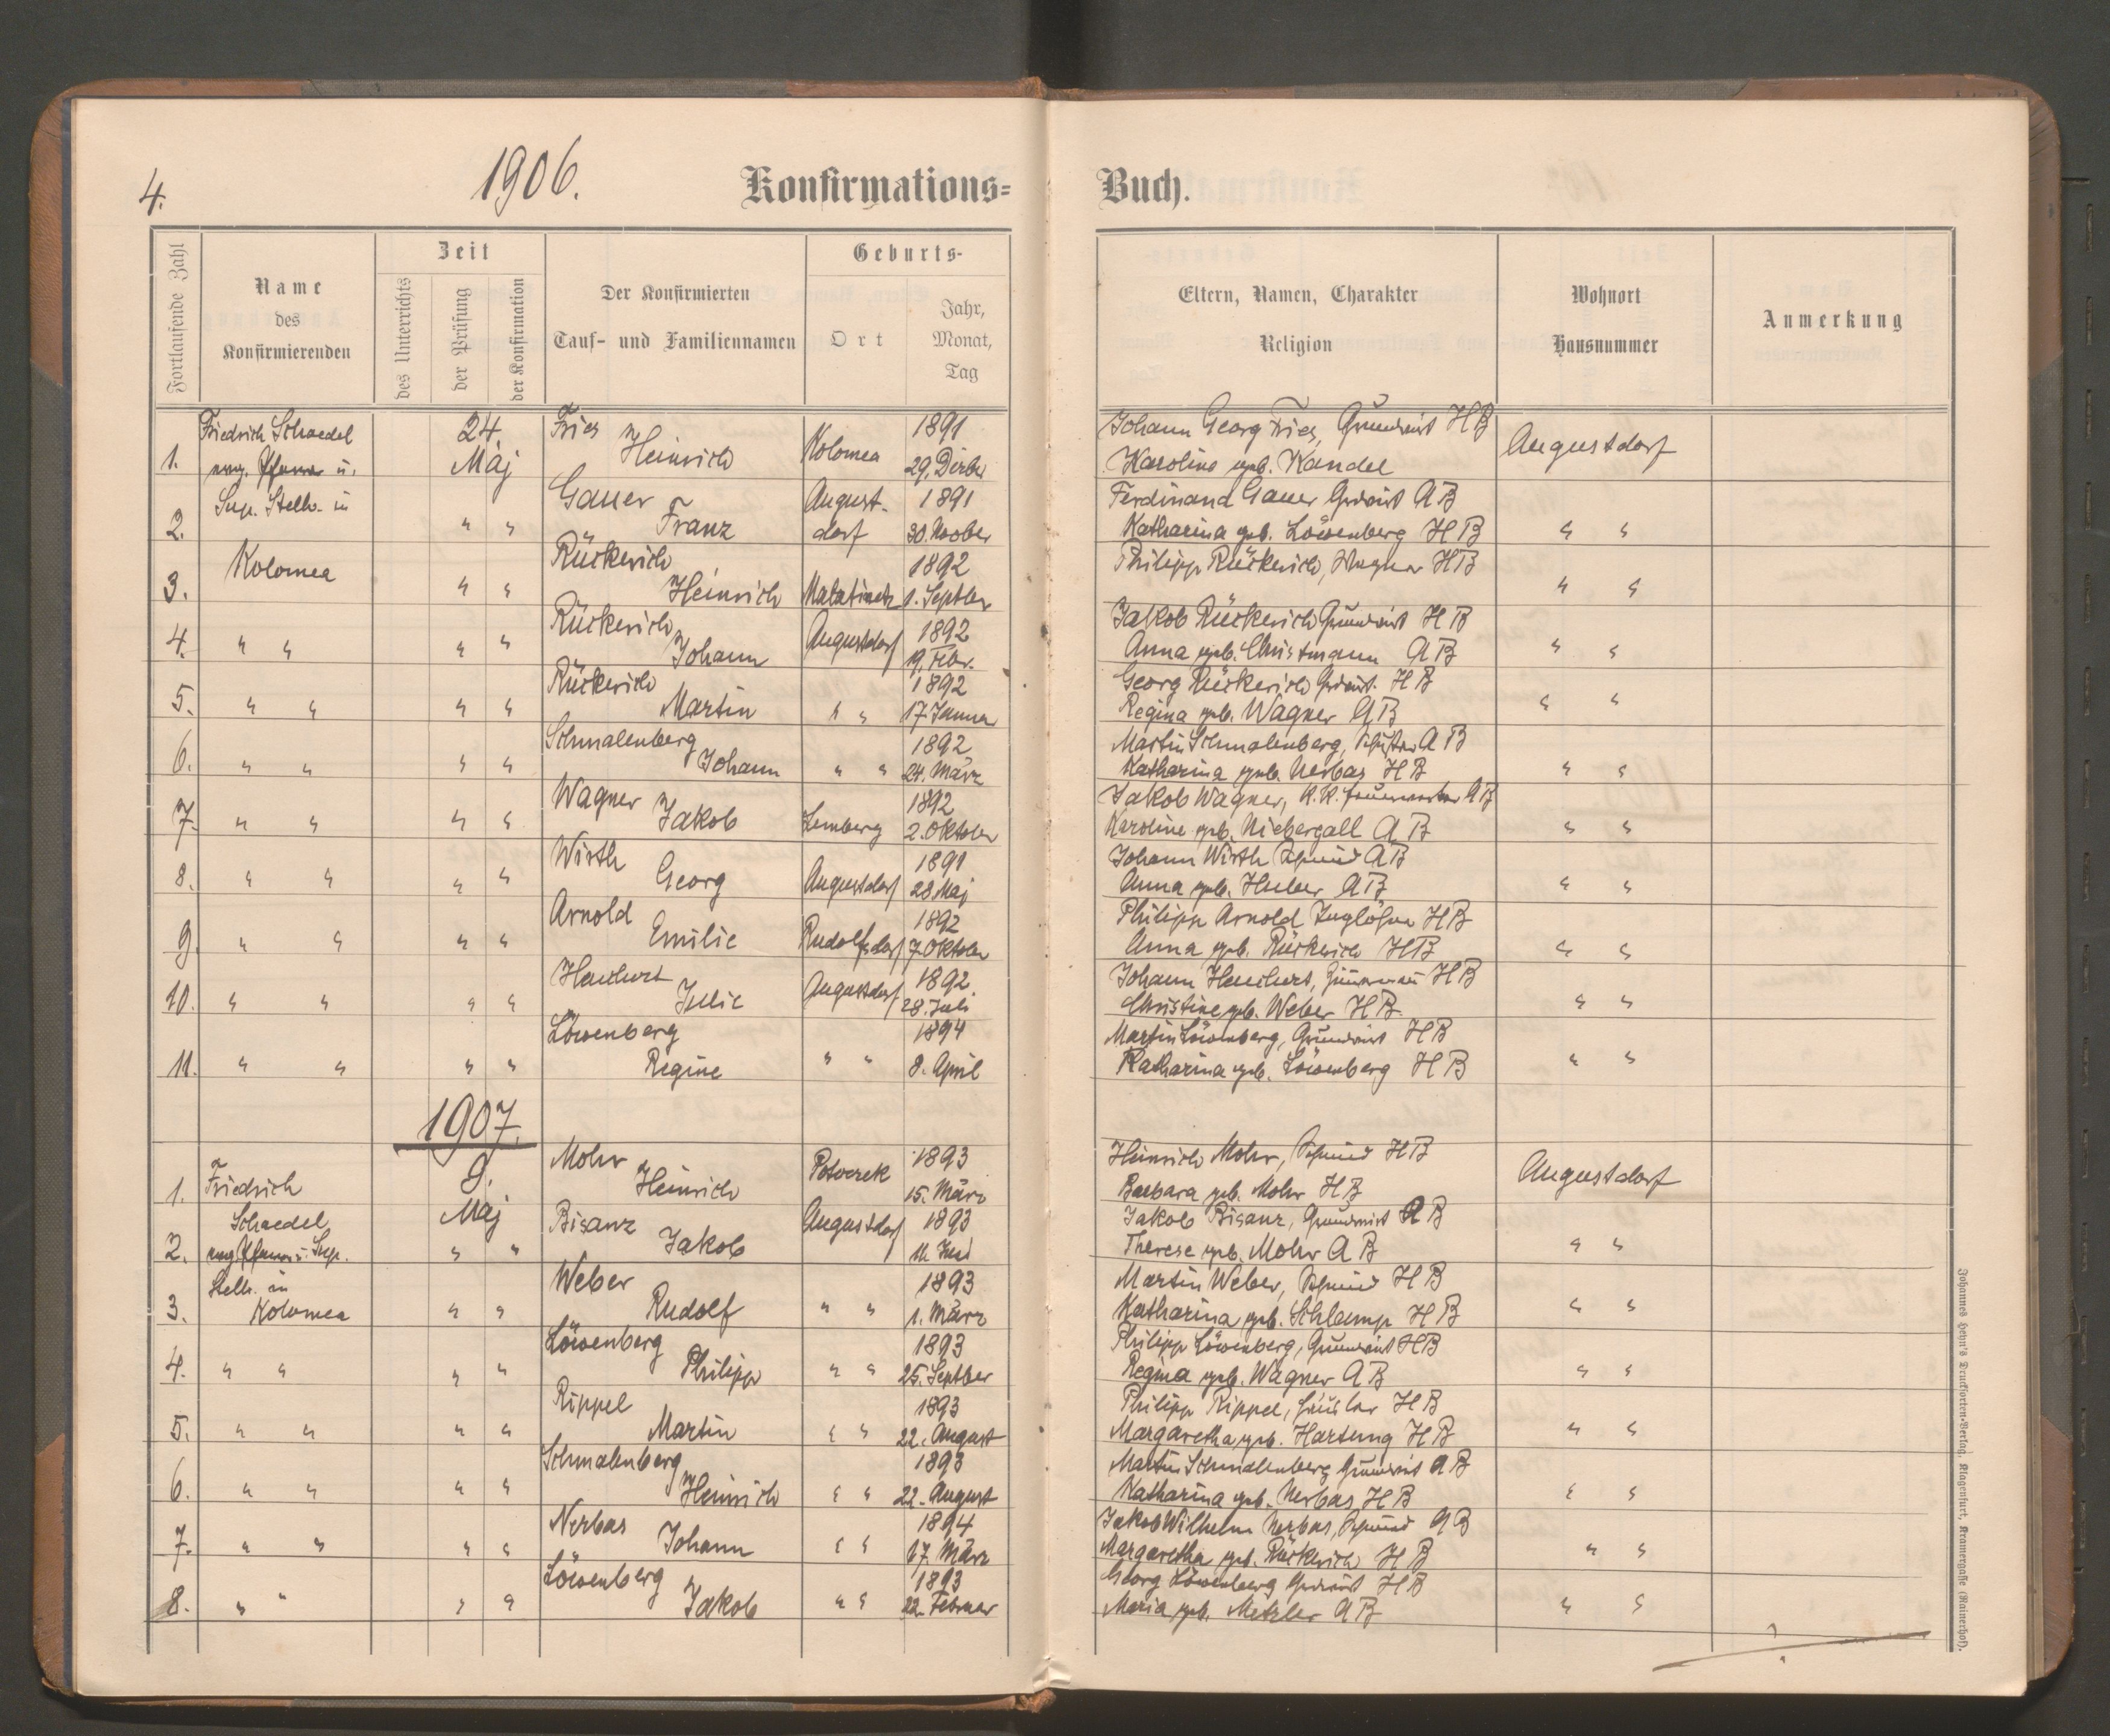 4.
1906.
Konfirmations=
Buch.
Fortlaufende Zahl
Name
des
Konfirmierenden
Zeit
des Unterrichts
der Prüfung
der Konfirmation
Der Konfirmierten
Tauf- und Familiennamen
Geburts-
Ort
Jahr,
Monat,
Tag
Eltern, Namen, Charakter
Religion
Wohnort
Hausnummer
Anmerkung
Friedrich Schaedel 24. Fries 1891 Johann Georg Fries, Grundwirt HB Augustdorf
1. evg. Pfarrer u. Maj Heinrich Kolomea 29. Dezbr Karoline geb. Kandel
Sup. Stellv. in Gauer August- 1891 Ferdinand Gauer Grdwirt AB
2. " " Franz dorf 30. Novber Katharina geb. Löwenberg HB " "
Kolomea Rückerich 1892 Philipp Rückerich, Wagner HB
3. " " Heinrich 1. Septber " "
Rückerich 1892 Jakob Rückerich Grundwirt HB
4. " " " " Johann Augustdorf 19. Febr. Anna geb. Christmann AB " "
Rückerich 1892 Georg Rückerich Grdwirt. HB
5. " " " " Martin " " 17. Januar Regina geb. Wagner AB " "
Schmalenberg 1892 Martin Schmalenberg, AB
6. " " " " Johann " " 24. März Katharina geb. Nerbas HB " "
Wagner 1892 Jakob Wagner, K.K. AB
7. " " " " Jakob Lemberg 2. Oktober Karoline geb. Niebergall AB " "
Wirth 1891 Johann Wirth Schmied AB
8. " " " " Georg Augustdorf 28 Maj Anna geb. Huber AB " "
Arnold 1892 Philipp Arnold HB
9. " " " " Emilie Rudolfsdorf 7. Oktober Anna geb. Rückerich HB " "
1892 Johann HB
10. " " " " Julie Augustdorf 28. Juli Christine geb. Weber HB " "
Löwenberg 1894 Martin Löwenberg, Grundwirt HB
11. " " " " Regine " " 8. April Katharina geb. Löwenberg HB " "
1907.
9. Mohr Potoczek 1893 Heinrich Mohr, Schmied HB Augustdorf
1. Friedrich Heinrich 15. März Barbara geb. Mohr HB
Schaedel Maj Bisanz Augustdorf 1893 Jakob Bisanz, Grundwirt AB
2. evg Pfarrer u. Sup. " " Jakob 11. Therese geb. Mohr AB " "
Stellv. in Weber 1893 Martin Weber, Schmied HB
3. Kolomea " " Rudolf " " 1. März Katharina geb. Schlamp HB " "
Löwenberg 1893 Philipp Löwenberg, Grundwirt HB
4. " " " " Philipp " " 25. Septber Regina geb. Wagner AB " "
Rippel 1893 Philipp Rippel, Häusler HB
5. " " " " Martin " " 22. August Margaretha geb. Hartung HB " "
Schmalenberg 1893 Martin Schmalenberg Grundwirt AB
6. " " " " Heinrich " " 22. August Katharina geb. Nerbas HB " "
Nerbas 1894 Jakob Wilhelm Nerbas, Schmied AB
7. " " " " Johann " " 17. März Margaretha geb. Rückerich HB " "
Löwenberg 1893 Georg Löwenberg Grdwirt HB
8. " " " " Jakob " " 22. Februar Maria geb. Metzler AB " "
Johannes Heyn's Drucksorten-Verlag, Klagenfurt, Kramergasse (Rainerhof).